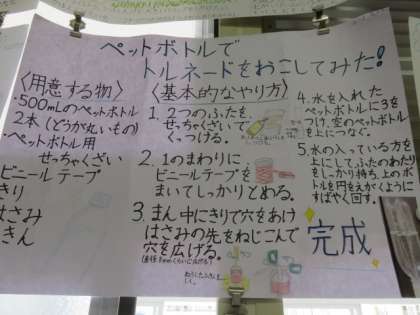 ペットボトルで
トルネードをおこしてみた!
〈用意する物〉
・500mLのペットボトル
2本(どうが丸いもの)
・ペットボトル用
せっちゃくざい
ビニールテープ
きり
はさみ
きん
〈基本的なやり方〉
1. 2つのふたを
せっちゃくざいで
くっつける。
2. 1のまわりに
ビニールテープを
まいてしっかりとめる。
3. まん中にきりで穴をあけ
はさみの先をねじこんで
穴を広げる。
4. 水を入れた
ペットボトルに3を
つけ、空のペットボトル
を上につなぐ。
5. 水の入っている方を
上にして、ふたのあたり
をしっかり持ち、上のボ
トルを円をえがくように
すばやく回す。
完成